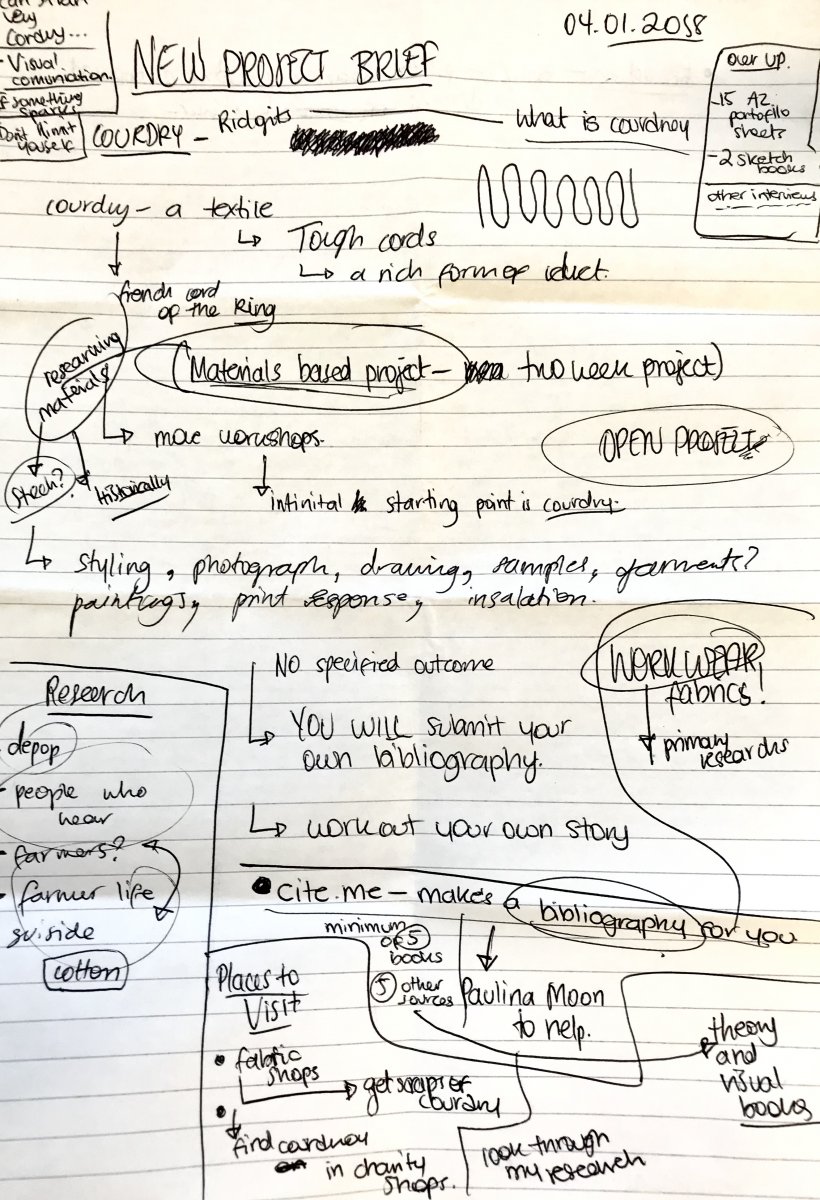 04.01.2018
Very
Cordry...
- Visual
comuniation.
if something
sparks
Don't limit
yourself
NEW PROJECT BRIEF
over up.
-15 A2
portofilo
sheets
- 2 sketch
books
other interviews
COURDRY - Ridgits
what is courdney
courdry - a textile
↳ Tough cords
↳ a rich former
french cord
of the King
researching
materials
(Materials based project - two week project)
↳ more workshops.
OPEN PROJECT
Historically
↓ infinital starting point is courdry.
↳ Styling, photograph, drawing, samples, garments?
paintings, print response, insalation.
NO specified outcome
WORK WEAR
fabrics!
↳ YOU WILL submit your
own bibliography.
primary
researchs
↳ workout your own story
Research
- depop
- people who
wear
- farmers?
- farmer life
suiside
cotton
• cite.me - makes a bibliography for you
minimum
of 5
books
5 other
sources
Paulina Moon
to help.
theory
and
visual
books
Places to
Visit
• fabric
shops
→ get scraps of
courdry
• find courdney
in charity
shops.
look through
my research